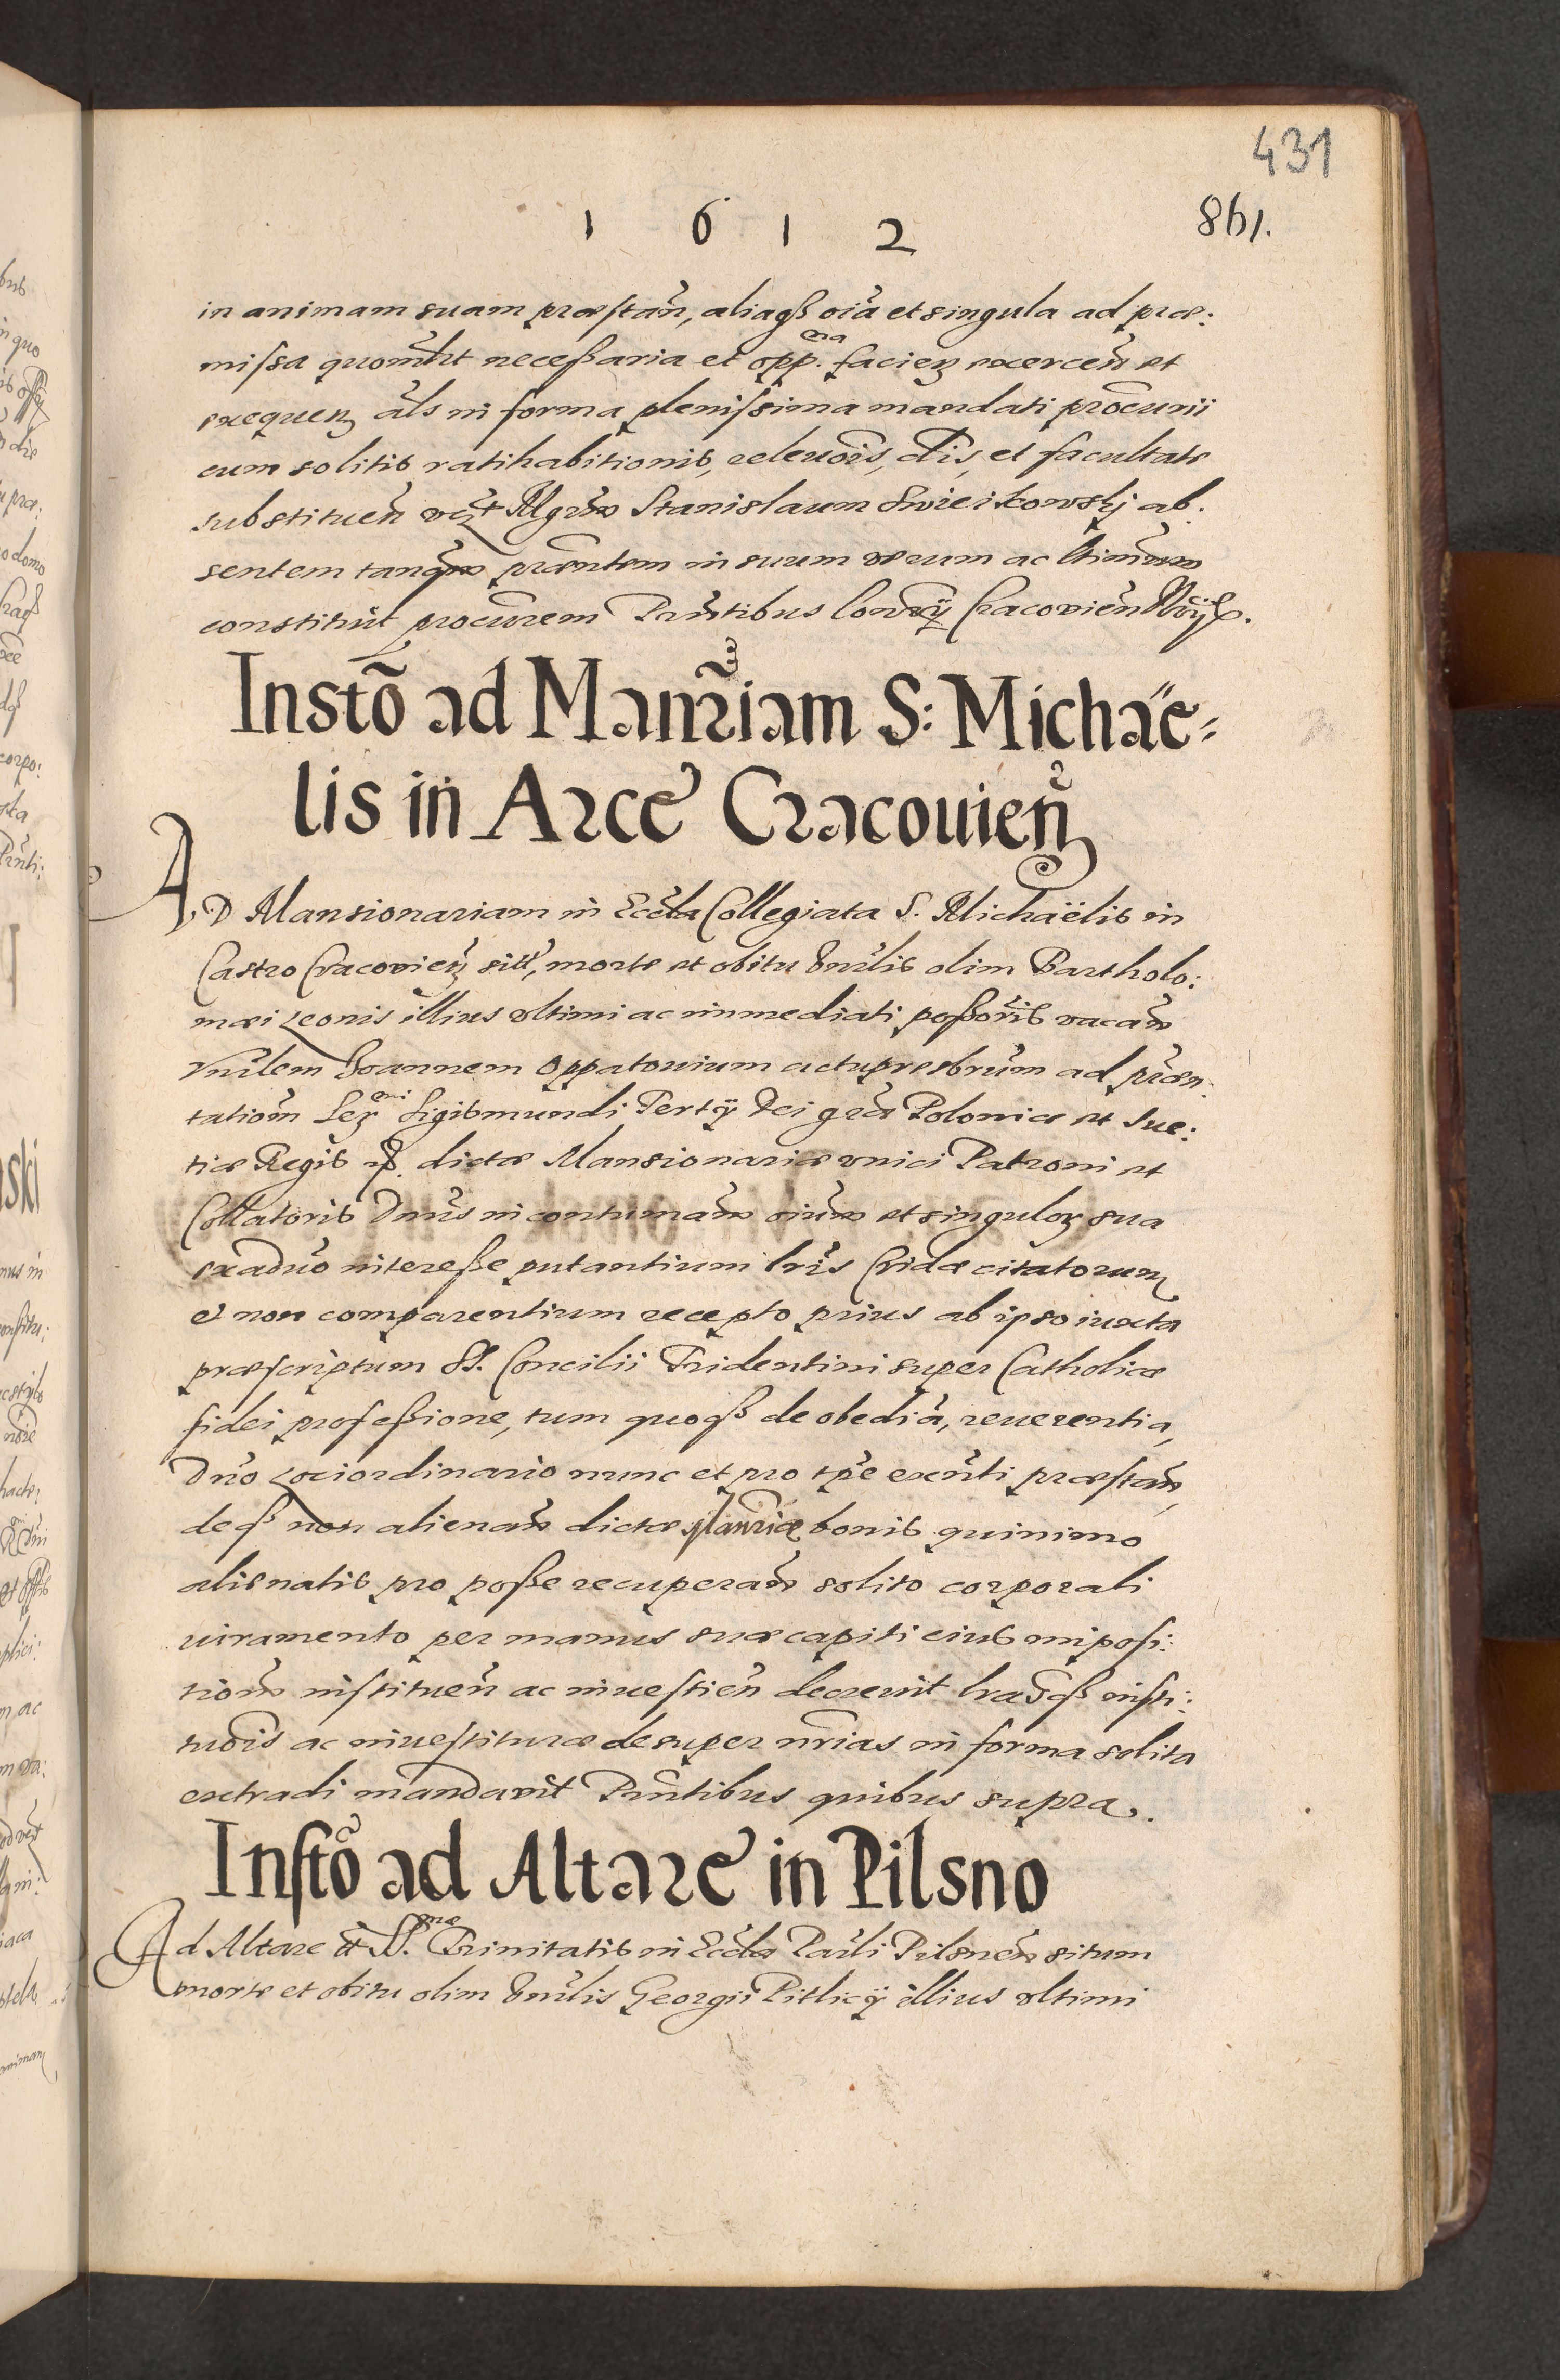 431
1 6 1 2
861.
in animam suam præstan̄, aliaqȝ oīa et singula ad præ:
missa quomlt necessaria et opp.na facien exercen̄ et
exequen als in forma plenissima mandati procurii
cum solitis ratihabitionis, releuōis, clis, et facultate
substituen̄ vczt Mgrm Stanislaum Swieikowskj ab:
sentem tanqm præntem in suum verum ac ltimum
constituit procurem Prntibus Conrÿ Cracovien̄
Instō ad Manr̄iam S: Michaë-
lis in Arce Cracouien
AD Mansionariam in Eccla Collegiata S. Michaëlis in
Castro Cracovien sitt, morte et obitu Vnlis olim Bartholo:
mæi Leonis illius vltimi ac immediati possoris vacan̄
Vnilem Joannem Oppatouium actupresbrum ad præn:
tatiom Ser.mi Sigismundi Tertÿ Dei gra Poloniæ et Sue:
tiæ Regis dictæ Mansionariæ vnici Patroni et
Collatoris Dnus in contumam oium et singulor sua
exaduo interesse putantium lris Cridæ citatorum
et non comparentium recepto prius ab ipso iuxta
præscriptum SS. Concilii Tridentini super Catholicæ
fidei professione, tum quoqȝ de obedia, reuerentia,
Dno Lociordinario nunc et pro tpe exnti præstan̄,
deqȝ non alienan̄ dictæ Manriæ bonis quinimo
alienatis pro posse recuperan̄ solito corporali
iuramento per manus suæ capiti eius imposi:
tiom instituen̄ ac inuestien̄ decreuit lrasqȝ insti:
tuōis ac inuestituræ desuper nrias in forma solita
extradi mandavit Prntibus quibus supra.
Instō ad Altare in Pilsno
Ad Altare tt SS.mæ Trinitatis in Eccla Pauli Pilsnen̄ situm
morte et obitu olim Vnlis Georgii Pitlicÿ illius vltimi